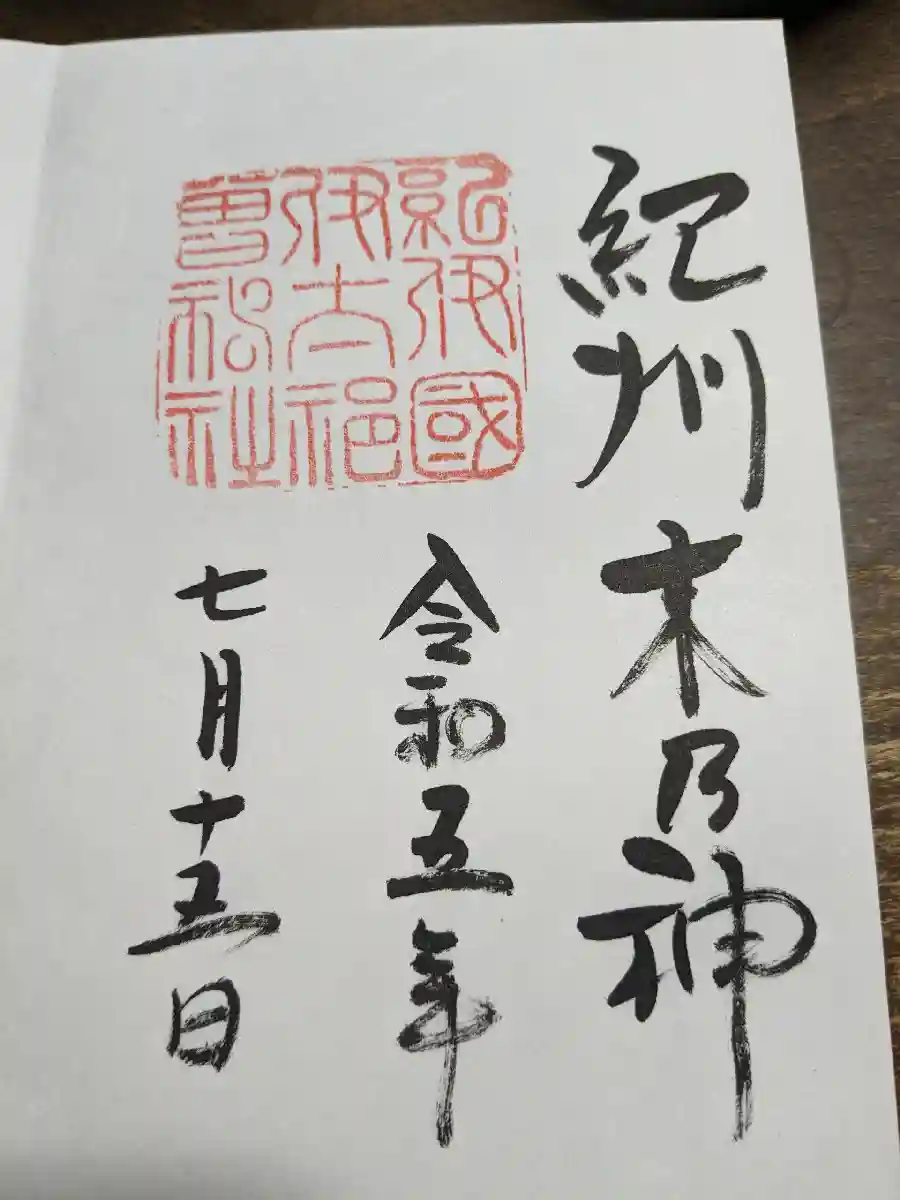 紀州木乃神
紀伊國
伊太祁
曽神社
令和五年
七月十五日